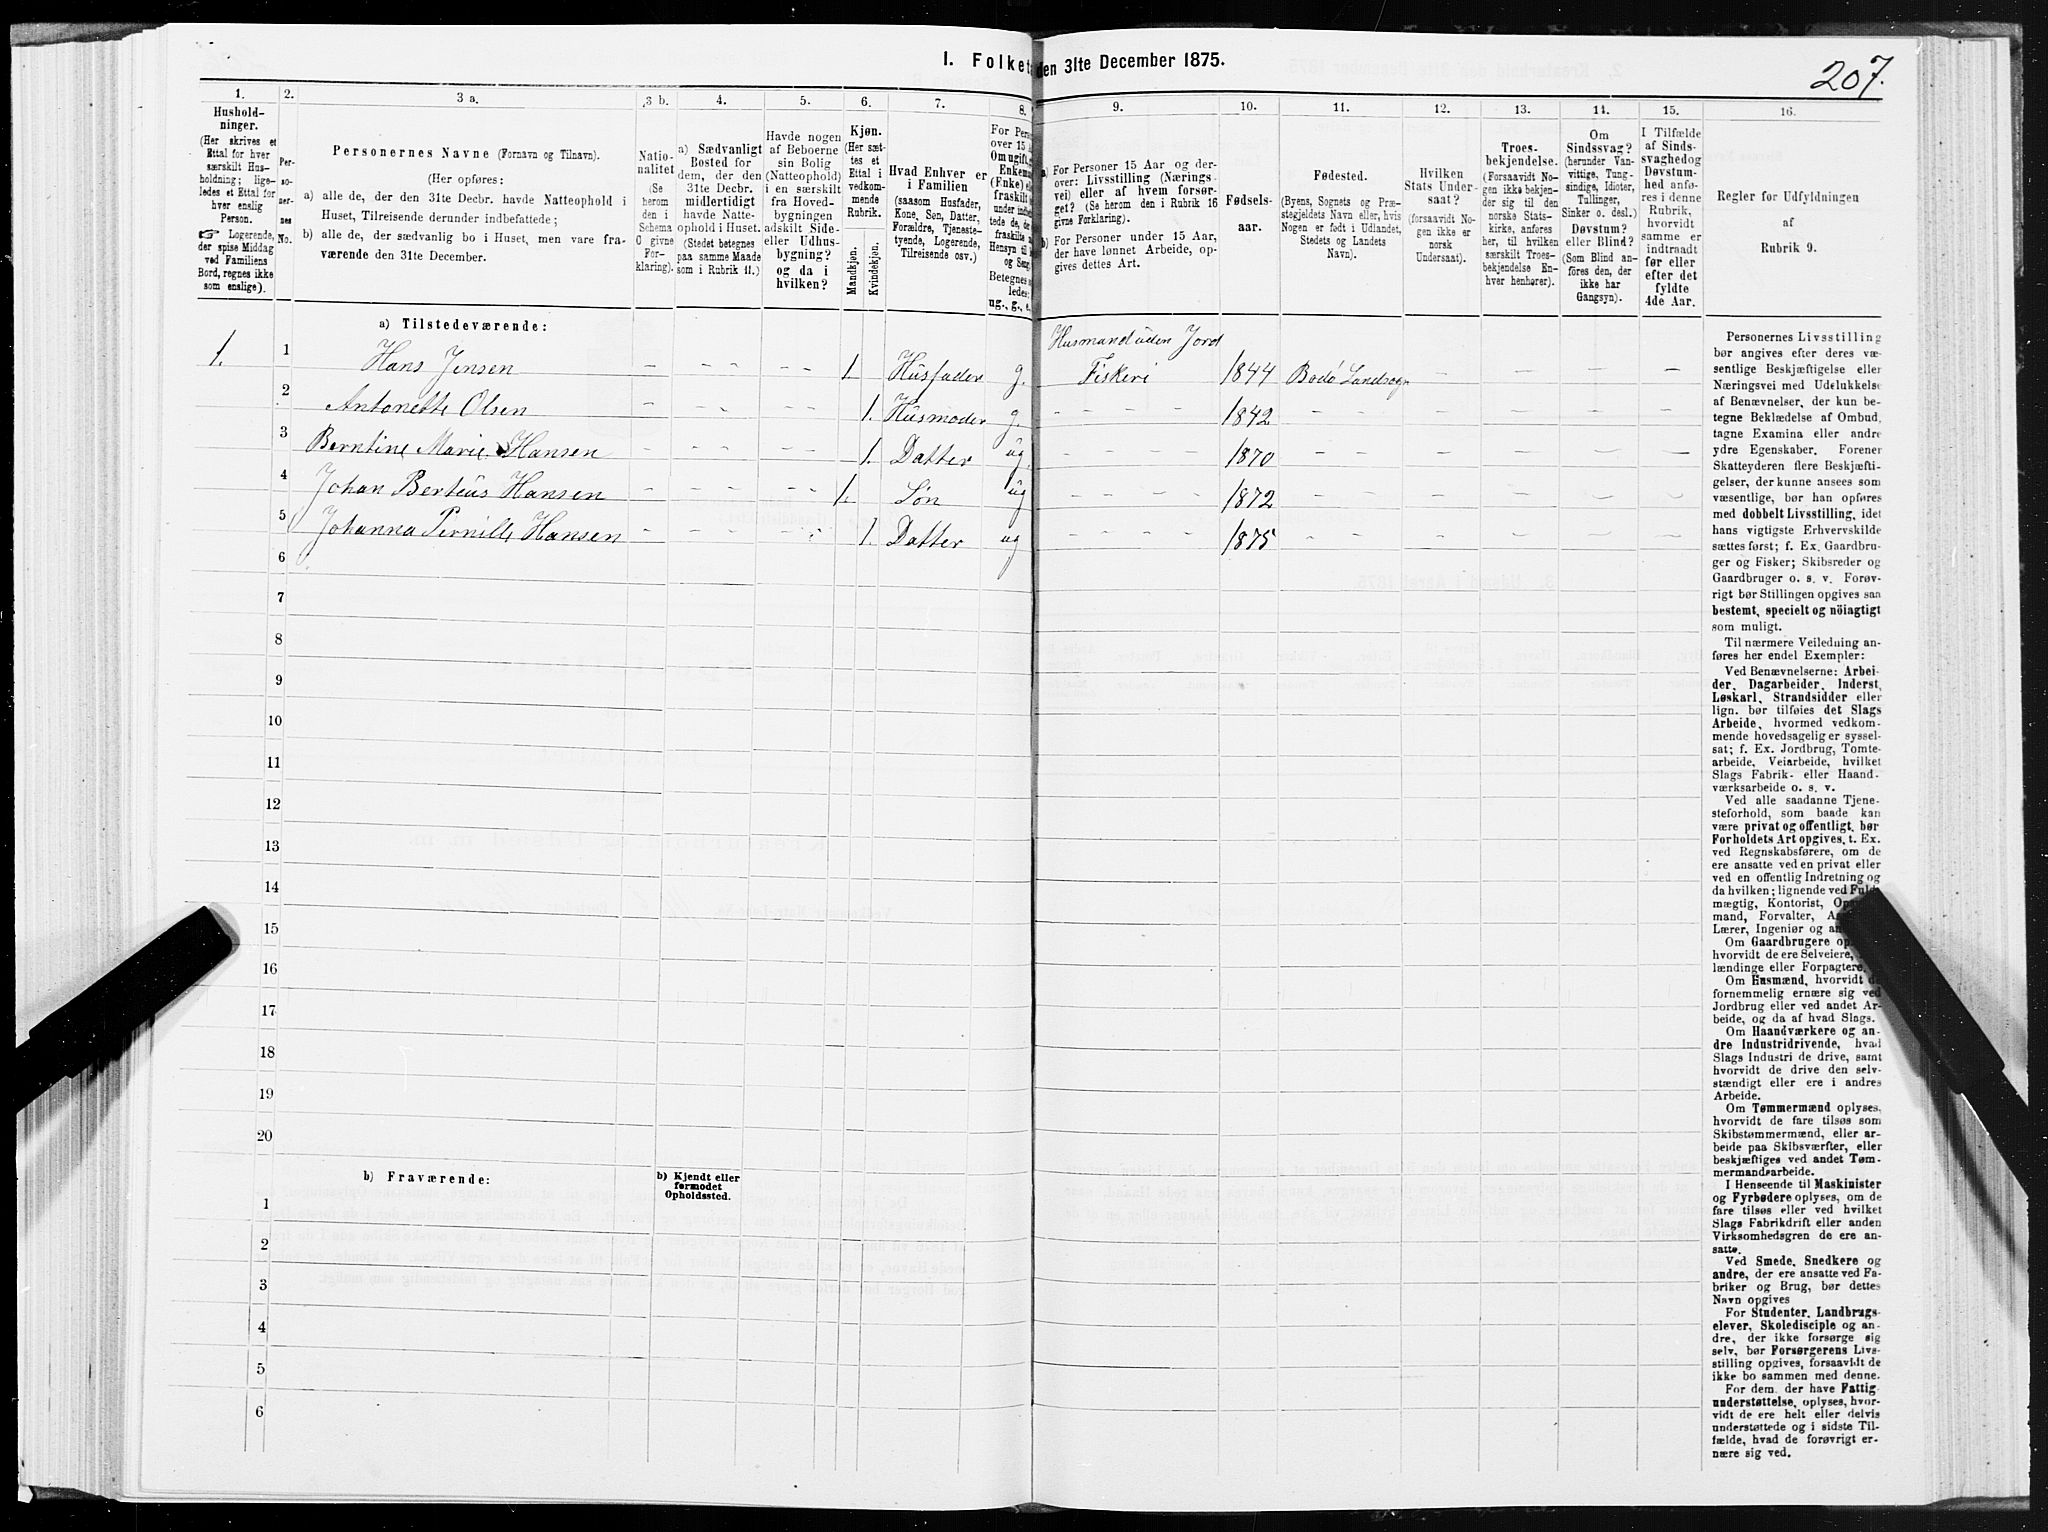 I. Folket den 31te December 1875.
207.
1. 2. 3 a. 3 b. 4. 5. 6. 7. 8. 9. 10. 11. 12. 13. 14. 15. 16.
Hushold-
ninger.
(Her skrives et
Ettal for hver
særskilt Hus-
holdning; lige-
ledes et Ettal for
hver enslig
Person.
☞ Logerende,
der spise Middag
ved Familiens
Bord, regnes ikke
som enslige).
Per-
so-
ner-
nes
No.
Personernes Navne (Fornavn og Tilnavn).
(Her opføres:
a) alle de, der den 31te Decbr. havde Natteophold i
Huset, Tilreisende derunder indbefattede;
b) alle de, der sædvanlig bo i Huset, men vare fra-
værende den 31te December.
Natio-
nalitet
(Se
herom
den i
Schema
O givne
For-
klaring).
a) Sædvanligt
Bosted for
dem, der den
31te Decbr.
midlertidigt
havde Natte-
ophold i Huset.
(Stedet betegnes
paa samme Maade
som i Rubrik 11.)
Havde nogen
af Beboerne
sin Bolig
(Natteophold)
i en særskilt
fra Hoved-
bygningen
adskilt Side-
eller Udhus-
bygning?
og da i
hvilken?
Kjøn.
(Her sæt-
tes et
Ettal i
vedkom-
mende
Rubrik.
Mandkjøn.
Kvindekjøn.
Hvad Enhver er
i Familien
(saasom Husfader,
Kone, Søn, Datter,
Forældre, Tjeneste-
tyende, Logerende,
Tilreisende osv.)
For Pers
over 15 A
Om ugift,
Enkema
(Enke) el
fraskilt
under indbe
tede de, de
fraskilte
Hensyn til
og Seng.
Betegnes
ledes:
ug., g., e.
a) For Personer 15 Aar og der-
over: Livsstilling (Nærings-
vei) eller af hvem forsør-
get? (Se herom den i Rubrik 16
givne Forklaring.)
b) For Personer under 15 Aar,
der have lønnet Arbeide, op-
gives dettes Art.
Fødsels-
aar.
Fødested.
(Byens, Sognets og Præ-
stegjeldets Navn eller, hvis
Nogen er født i Udlandet,
Stedets og Landets
Navn).
Hvilken
Stats Under-
saat?
(forsaavidt No-
gen ikke er
norsk
Undersaat).
Troes-
bekjendelse.
(Forsaavidt No-
gen ikke bekjen-
der sig til den
norske Stats-
kirke, anføres
her, til hvilken
særskilt Troes-
bekjendelse En-
hver henhører).
Om
Sindssvag?
(herunder Van-
vittige, Tung-
sindige, Idioter,
Tullinger,
Sinker o. desl.)
Døvstum?
eller Blind?
(Som Blind an-
føres den, der
ikke har
Gangsyn).
I Tilfælde
af Sinds-
svaghed og
Døvstum-
hed anfø-
res i denne
Rubrik,
hvorvidt
samme er
indtraadt
før eller
efter det
fyldte
4de Aar.
Regler for Udfyldningen
af
Rubrik 9.
a) Tilstedeværende:
Husmand uden Jord
1. 1 Hans Jensen - - - - - 1. Husfader g. Fiskeri 1844 Bodø Landsogn - - - -
2 Antonette Olsen - - - - - 1. Husmoder g. - - - - 1842 - - - - - -
3 Berntine Marie Hansen - - - - - 1. Datter ug. - - - - 1870 - - - - - -
4 Johan Berteus Hansen - - - - - 1. Søn ug - - - - 1872 - - - - - -
5 Johanna Pernille Hansen - - - - - 1. Datter ug - - - - 1875 - - - - - -
6
7
8
9
10
11
12
13
14
15
16
17
18
19
20
b) Fraværende:
b) Kjendt eller
formodet
Opholdssted.
1
2
3
4
5
6
Personernes Livsstilling
bør angives efter deres væ-
sentlige Beskjæftigelse eller
Næringsvei med Udelukkelse
af Benævnelser, der kun be-
tegne Beklædelse af Ombud,
tagne Examina eller andre
ydre Egenskaber. Forener
Skatteyderen flere Beskjæfti-
gelser, der kunne ansees som
væsentlige, bør han opføres
med dobbelt Livsstilling, idet
hans vigtigste Erhvervskilde
sættes først; f. Ex. Gaardbru-
ger og Fisker; Skibsreder og
Gaardbruger o. s. v. Forøv-
rigt bør Stillingen opgives saa
bestemt, specielt og nöiagtigt
som muligt.
Til nærmere Veiledning an-
føres her endel Exempler:
Ved Benævnelserne: Arbei-
der, Dagarbeider, Inderst,
Løskarl, Strandsidder eller
lign. bør tilføies det Slags
Arbeide, hvormed vedkom-
mende hovedsagelig er syssel-
sat; f. Ex. Jordbrug, Tomte-
arbeide, Veiarbeide, hvilket
Slags Fabrik- eller Haand-
værksarbeide o. s. v.
Ved alle saadanne Tjene-
steforhold, som baade kan
være privat og offentligt, bør
Forholdets Art opgives, t. Ex.
ved Regnskabsførere, om de
ere ansatte ved en privat eller
ved en offentlig Indretning og
da hvilken; lignende ved Fuld-
mægtig, Kontorist, Op
mand, Forvalter, As
Lærer, Ingeniør og an
Om Gaardbrugere op
hvorvidt de ere Selveiere,
lændinge eller Forpagtere.
Om Husmænd, hvorvidt d
fornemmelig ernære sig ved
Jordbrug eller ved andet Ar-
beide, og da af hvad Slags.
Om Haandværkere og an-
dre Industridrivende, hvad
Slags Industri de drive, samt
hvorvidt de drive den selv-
stændigt eller ere i andres
Arbeide.
Om Tømmermænd oplyses,
hvorvidt de fare tilsøs som
Skibstømmermænd, eller ar-
beide paa Skibsværfter, eller
beskjæftiges ved andet Tøm-
mermandsarbeide.
I Henseende til Maskinister
og Fyrbødere oplyses, om de
fare tilsøs eller ved hvilket
Slags Fabrikdrift eller anden
Virksomhedsgren de ere an-
satte.
Ved Smede, Snedkere og
andre, der ere ansatte ved Fa-
briker og Brug, bør dettes
Navn opgives
For Studenter, Landbrugs-
elever, Skoledisciple og an-
dre, der ikke forsørge sig
selv, bør Forsørgerens Livs-
stilling opgives, forsaavidt de
ikke bo sammen med denne.
For dem, der have Fattig-
understøttelse, oplyses, hvor-
vidt de ere helt eller delvis
understøttede og i sidste Til-
fælde, hvad de forøvrigt er-
nære sig ved.